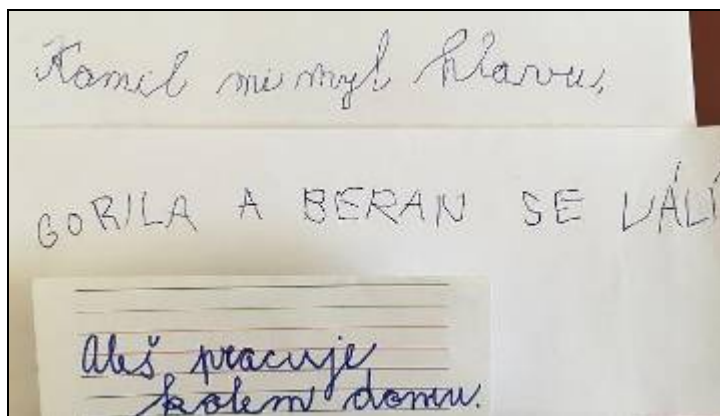 Kamil mi myl hlavu.
GORILA A BERAN SE VÁLÍ
Aleš pracuje
kolem domu.